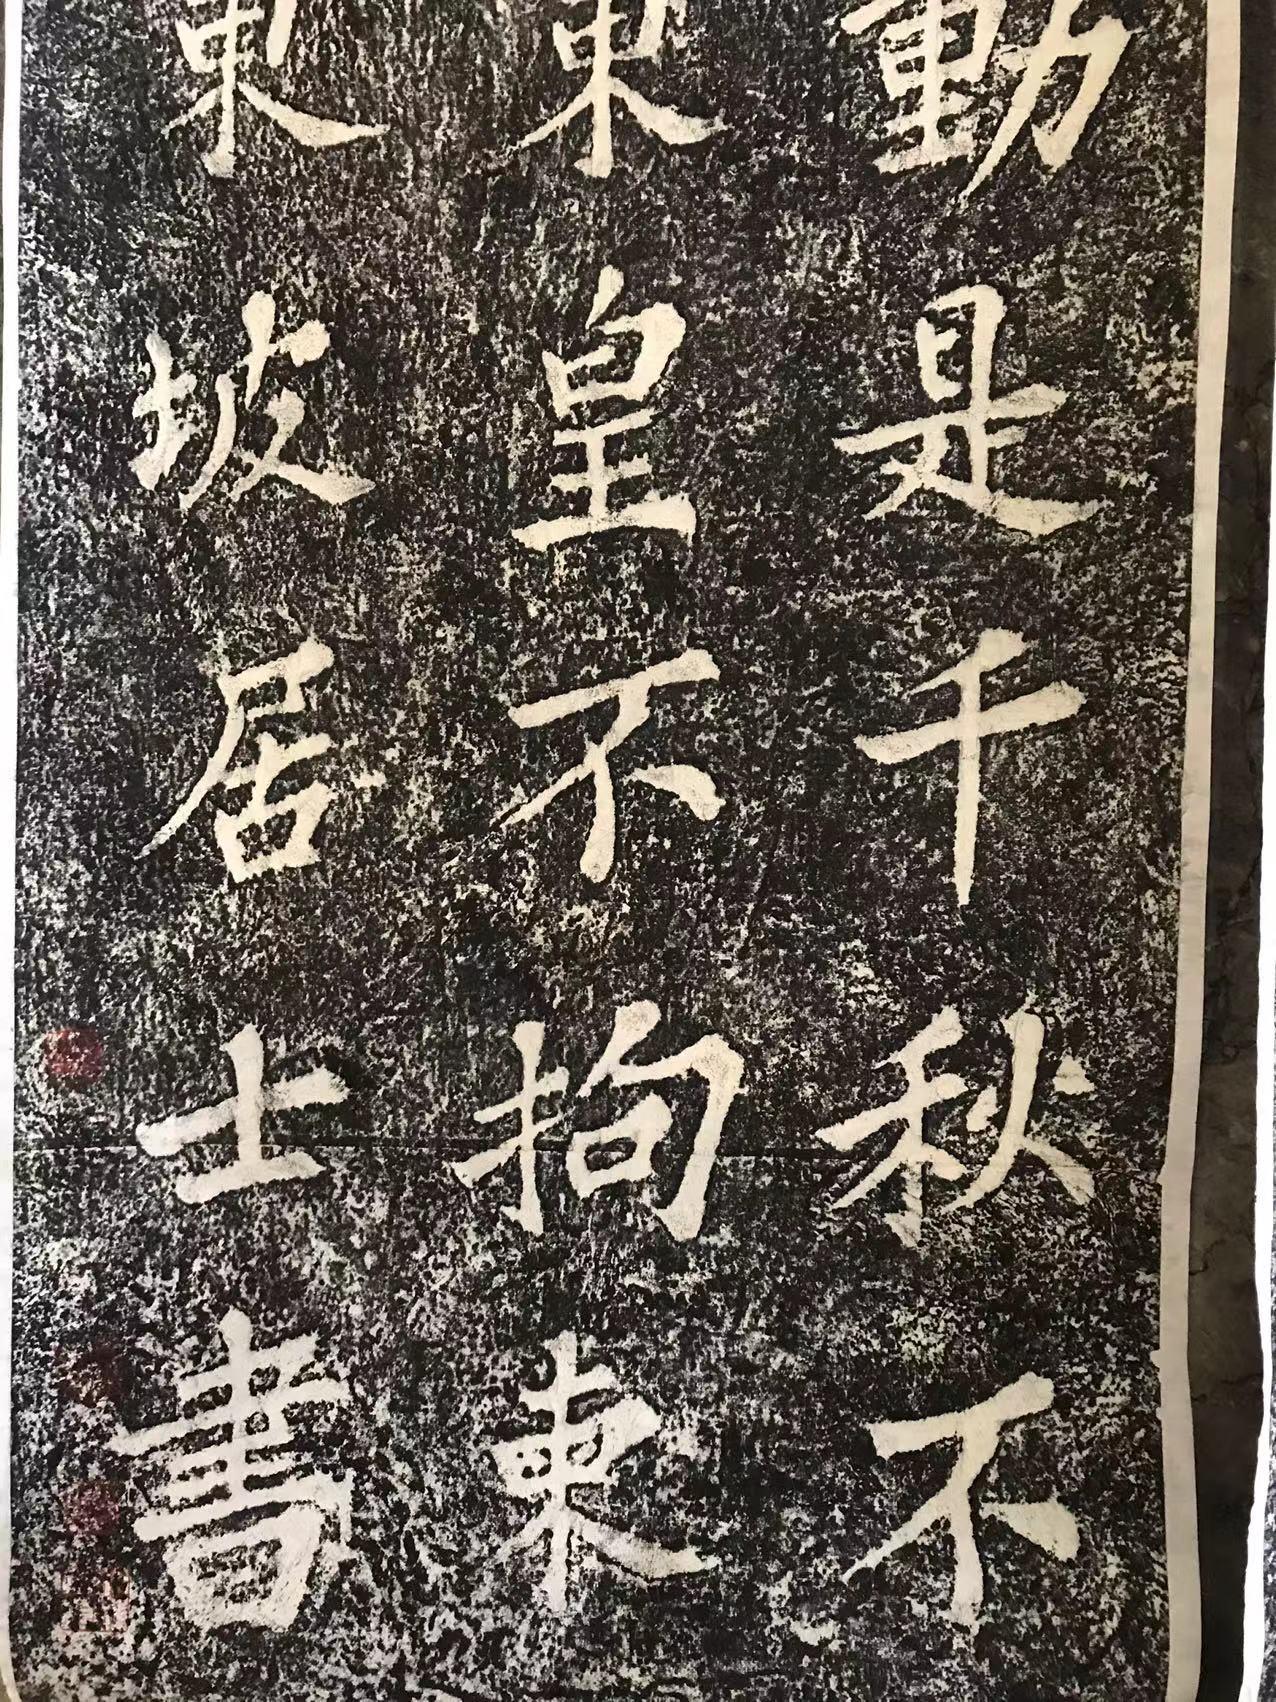 動是千秋不
東皇不拘東
東坡居士書